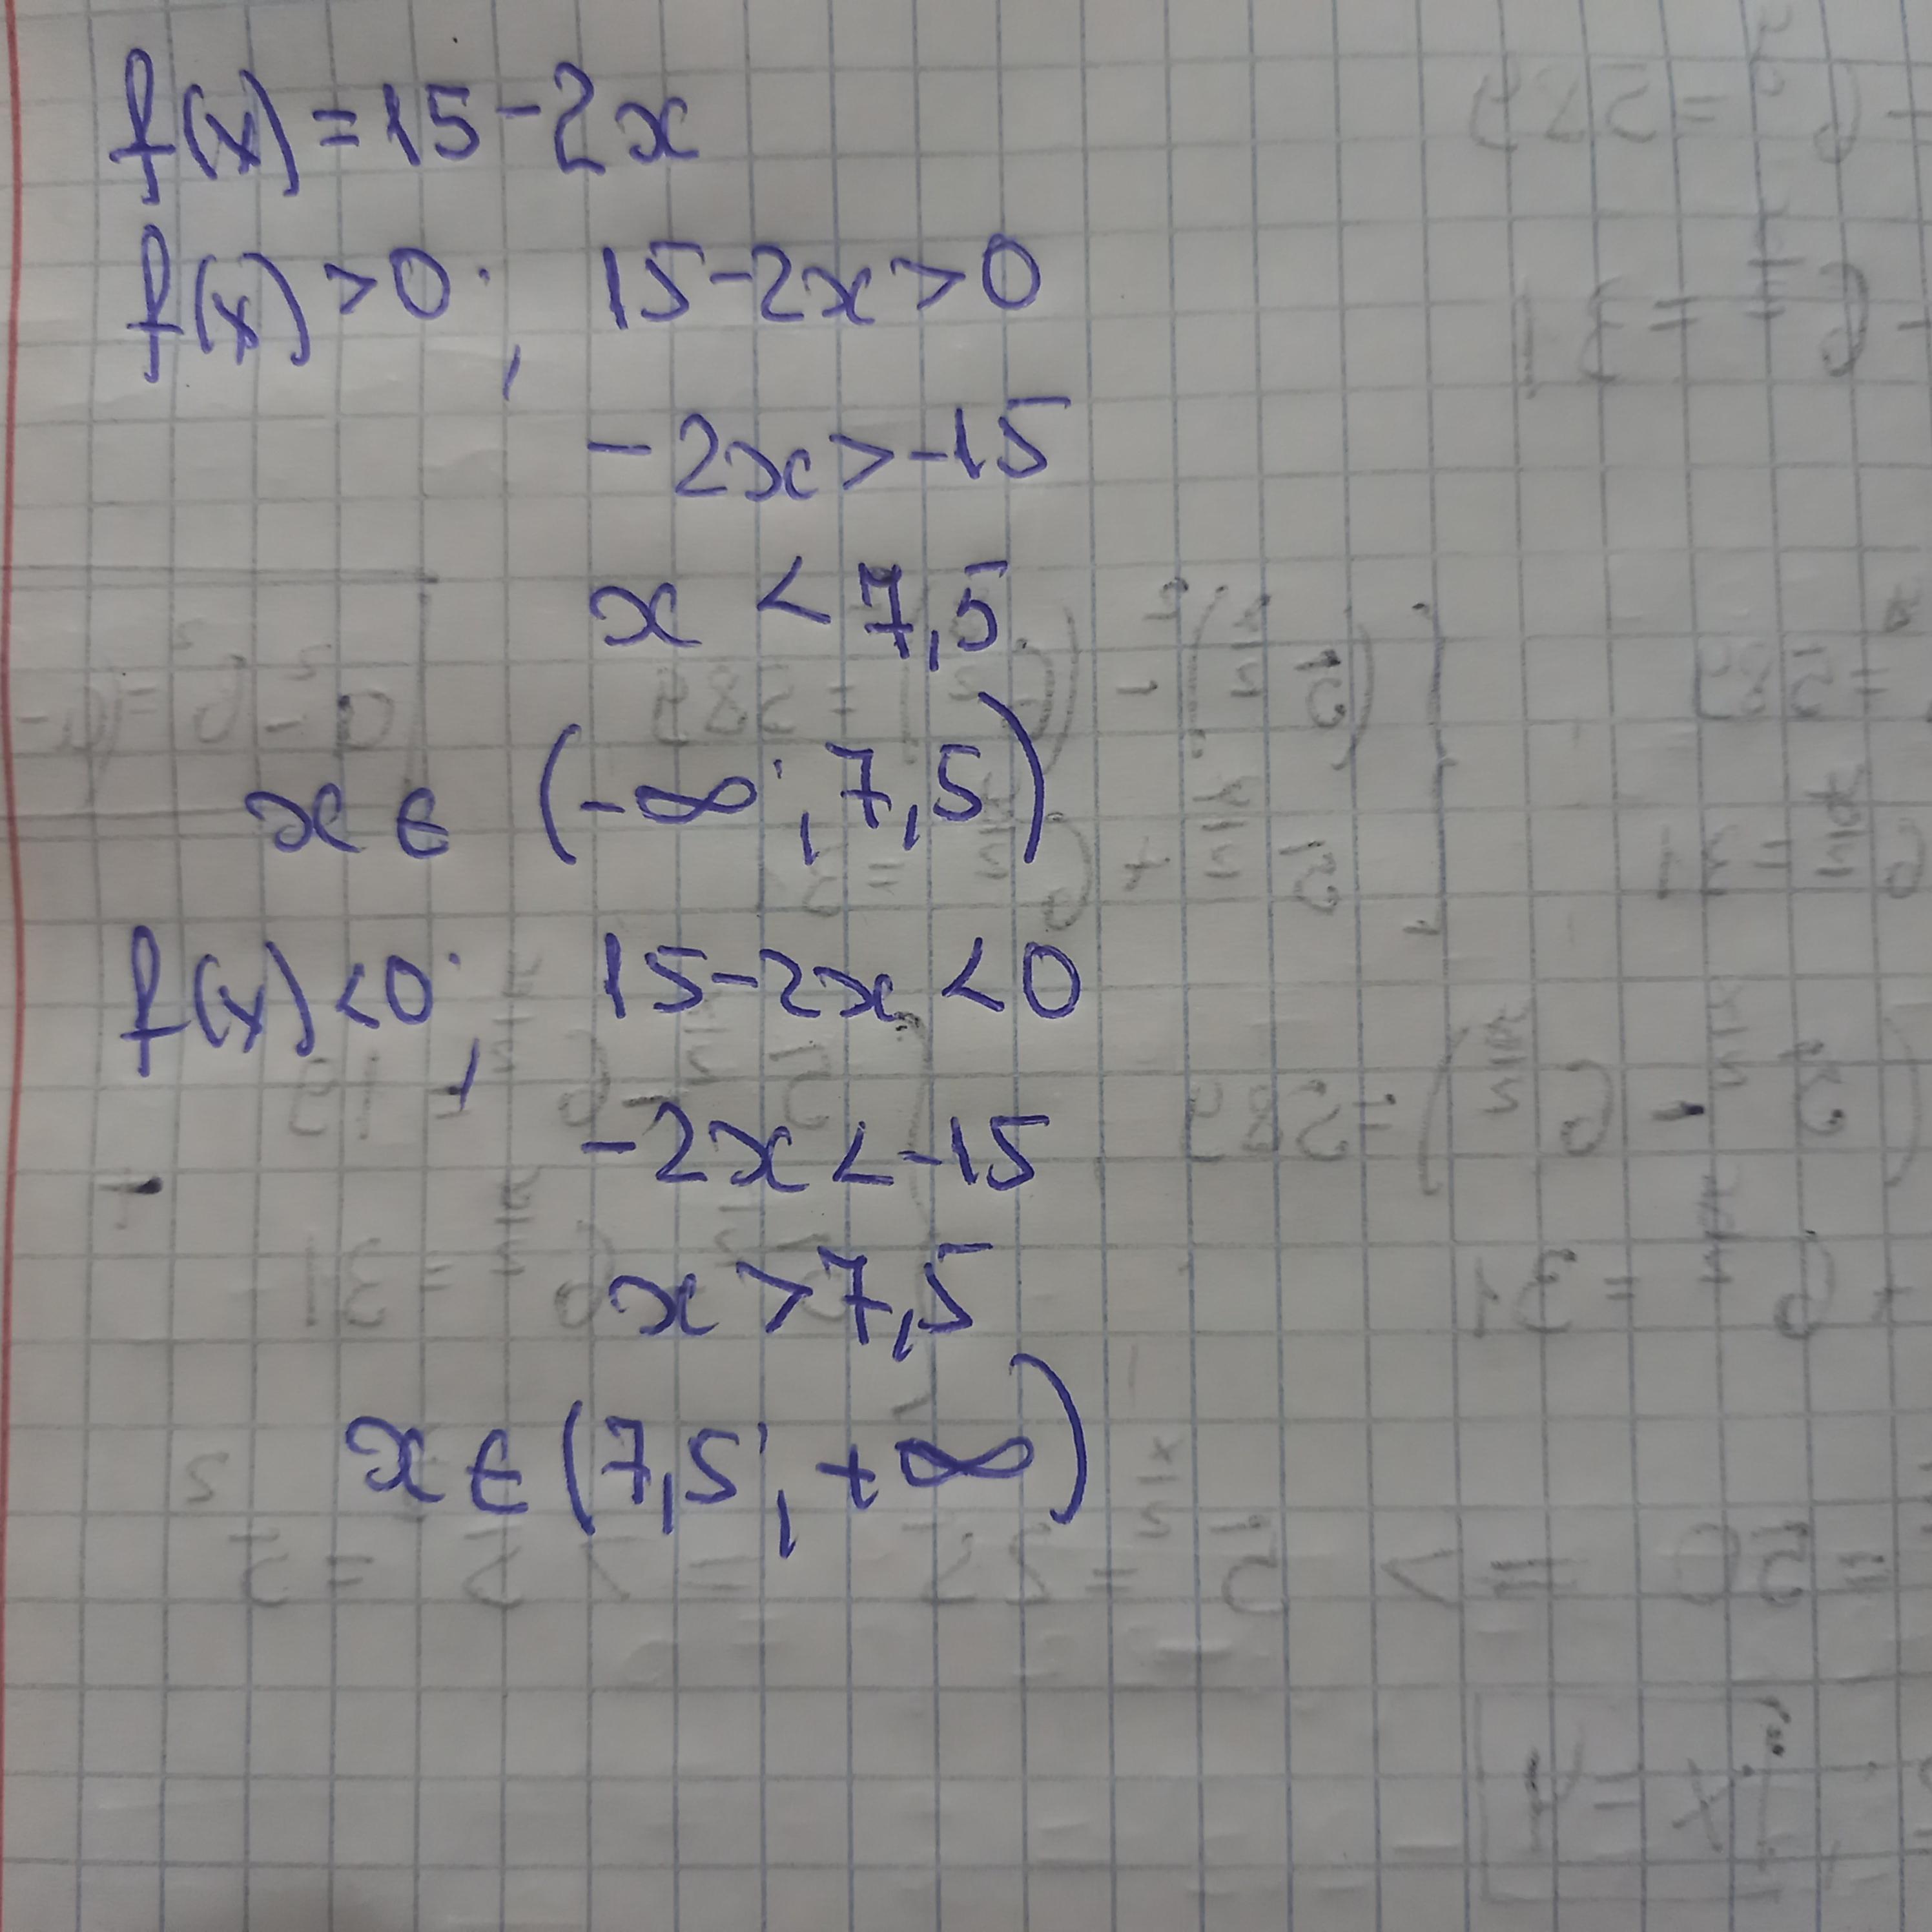 f(x) = 15 - 2x
f(x) > 0; 15 - 2x > 0
- 2x > -15
x < 7,5
x ∈ (-∞; 7,5)
f(x) < 0; 15 - 2x < 0
- 2x < -15
x > 7,5
x ∈ (7,5; +∞)